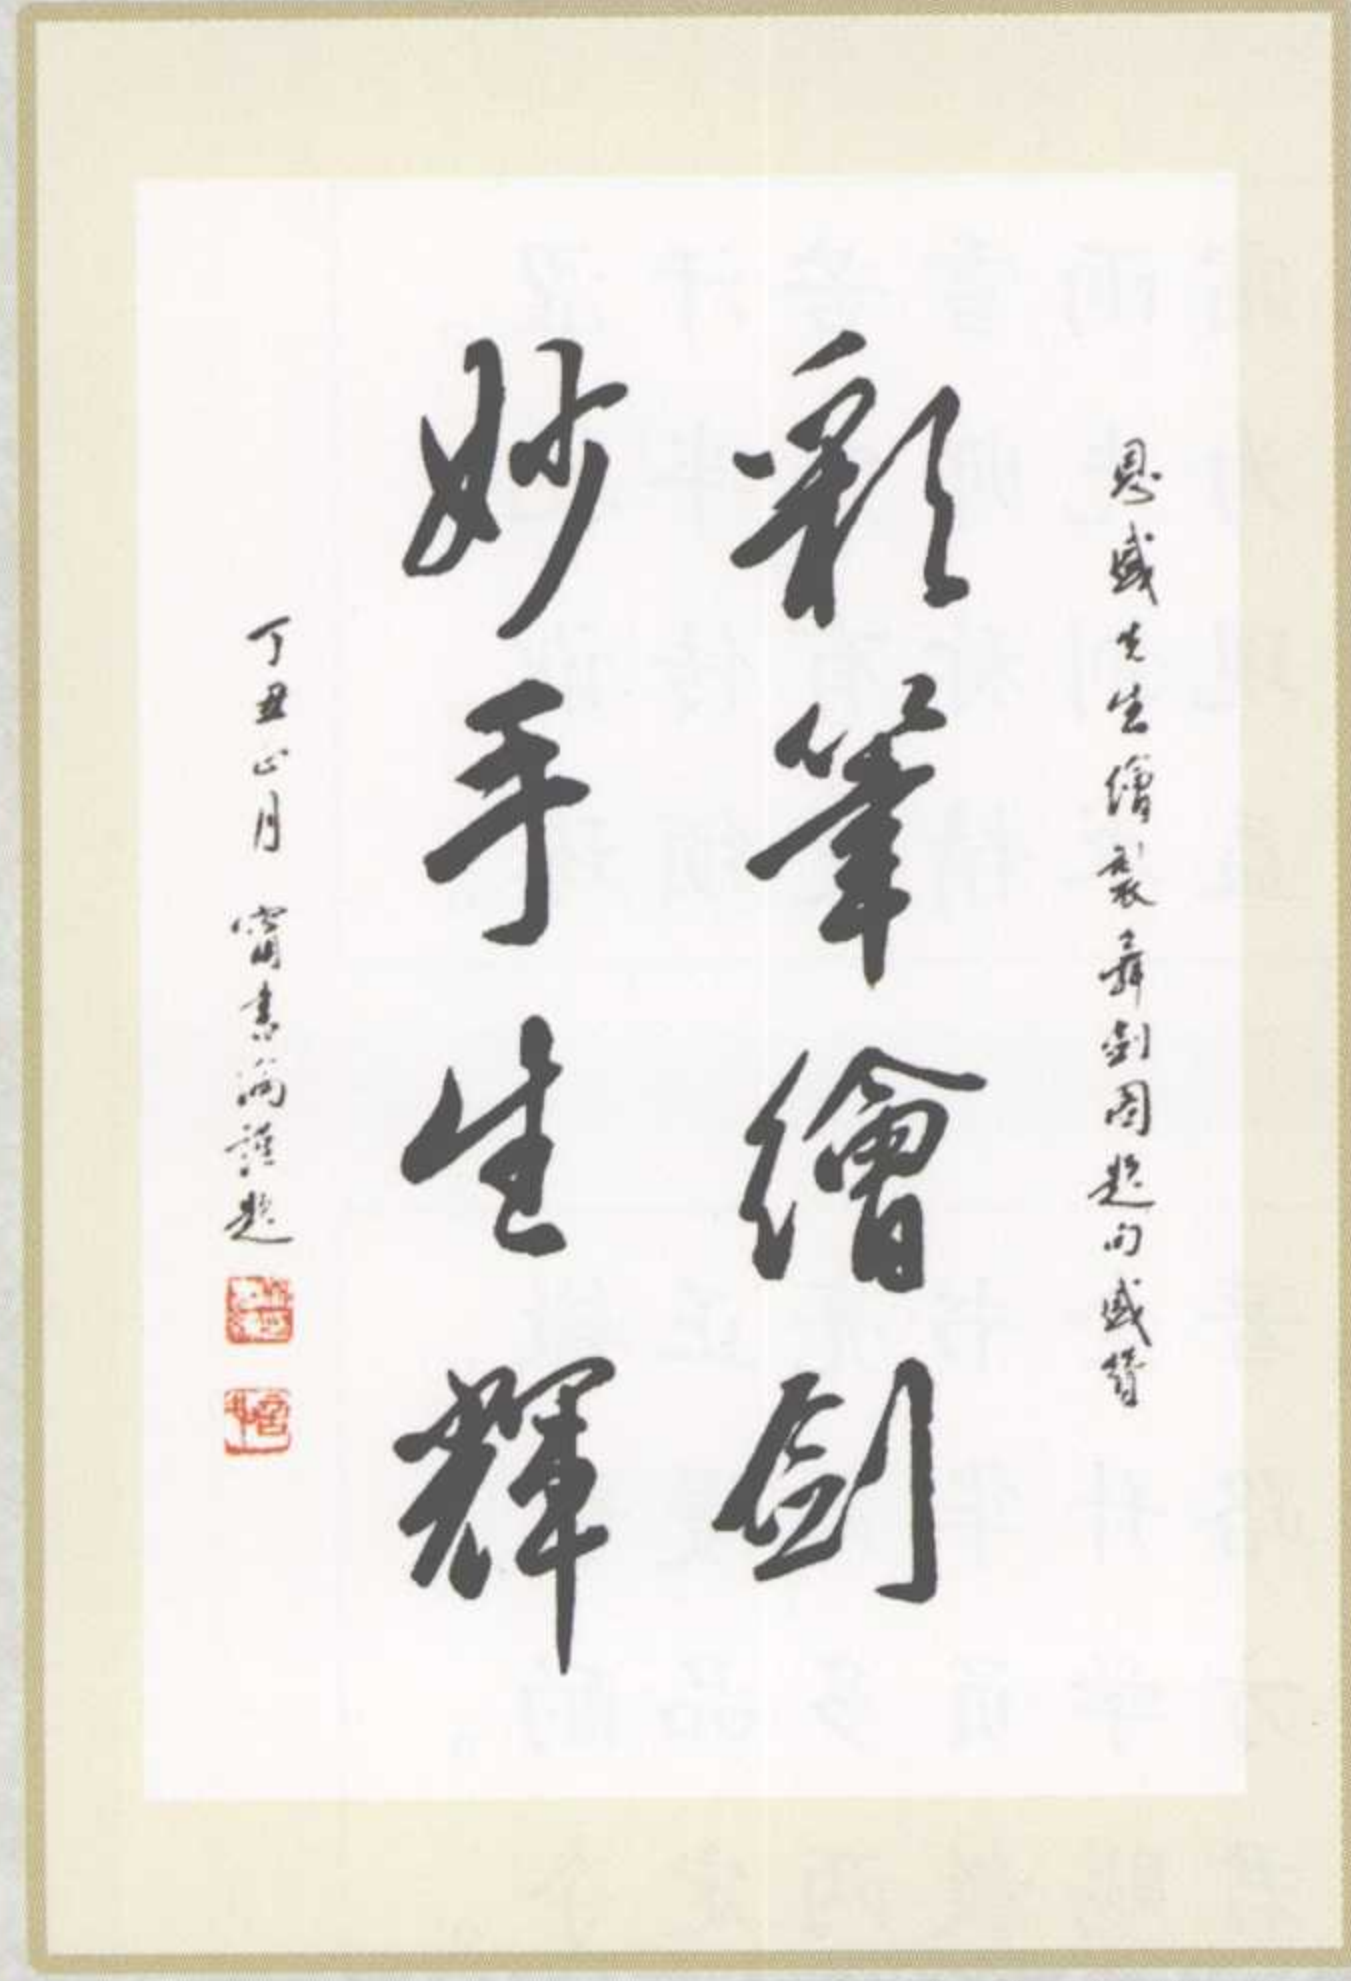 恩盛先生繪製舞劍圖題句盛贊
彩筆繪劍
妙手生輝
丁丑正月 甯書綸謹題